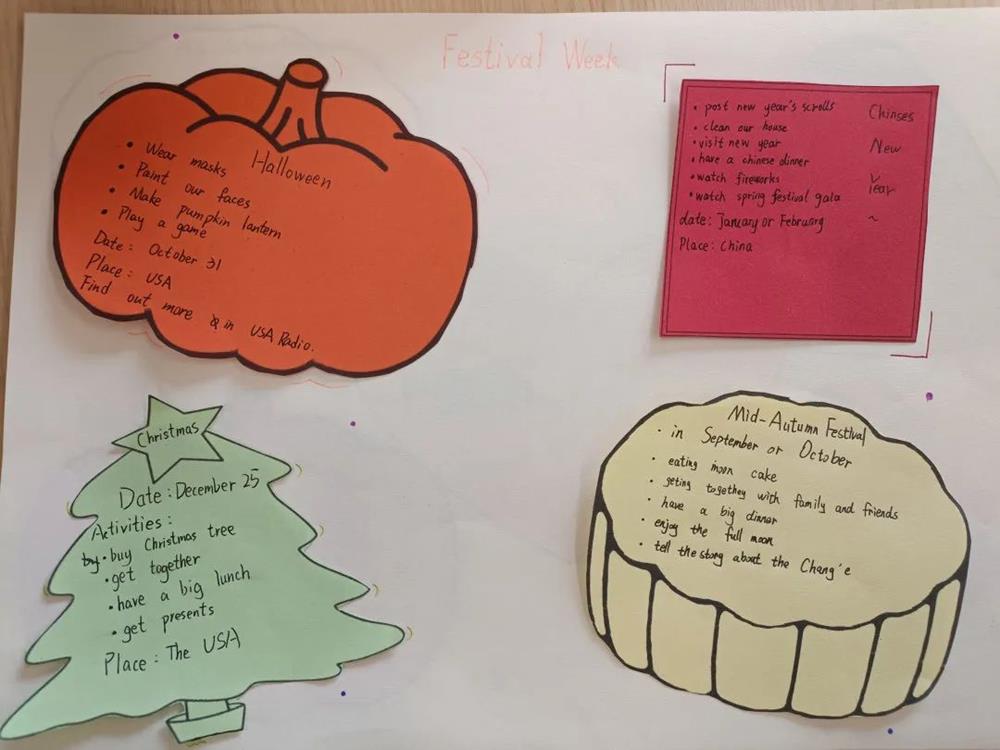 Festival Week
Halloween
• Wear masks
• Paint our faces
• Make pumpkin lantern
• Play a game
Date: October 31
Place: USA
Find out more in USA Radio.
Chinses
New
Year
~
• post new year's scrolls
• clean our house
• visit new year
• have a chinese dinner
• watch fireworks
• watch spring festival gala
date: January or February
Place: China
Christmas
Date: December 25
Activities:
• buy Christmas tree
• get together
• have a big lunch
• get presents
Place: The USA
Mid-Autumn Festival
• in September or October
• eating moon cake
• geting together with family and friends
• have a big dinner
• enjoy the full moon
• tell the story about the Chang'e